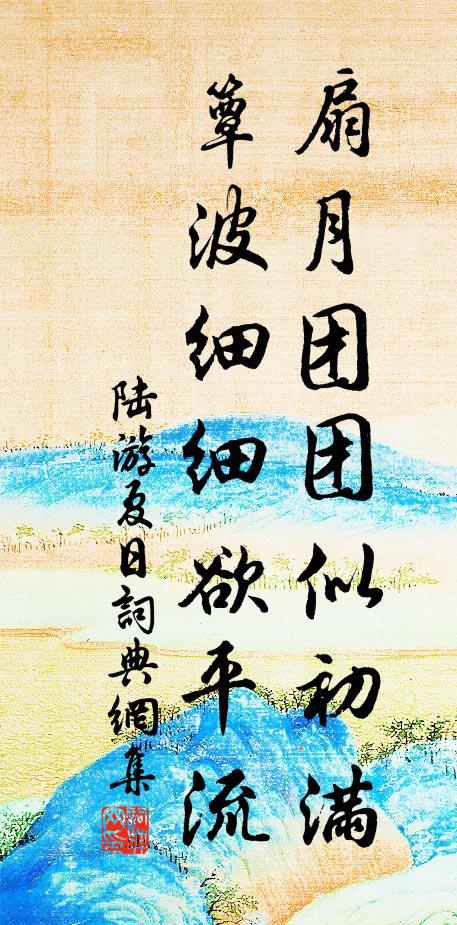 扇月团团似初满
簟波细细欲平流
陆游夏日詞典網集